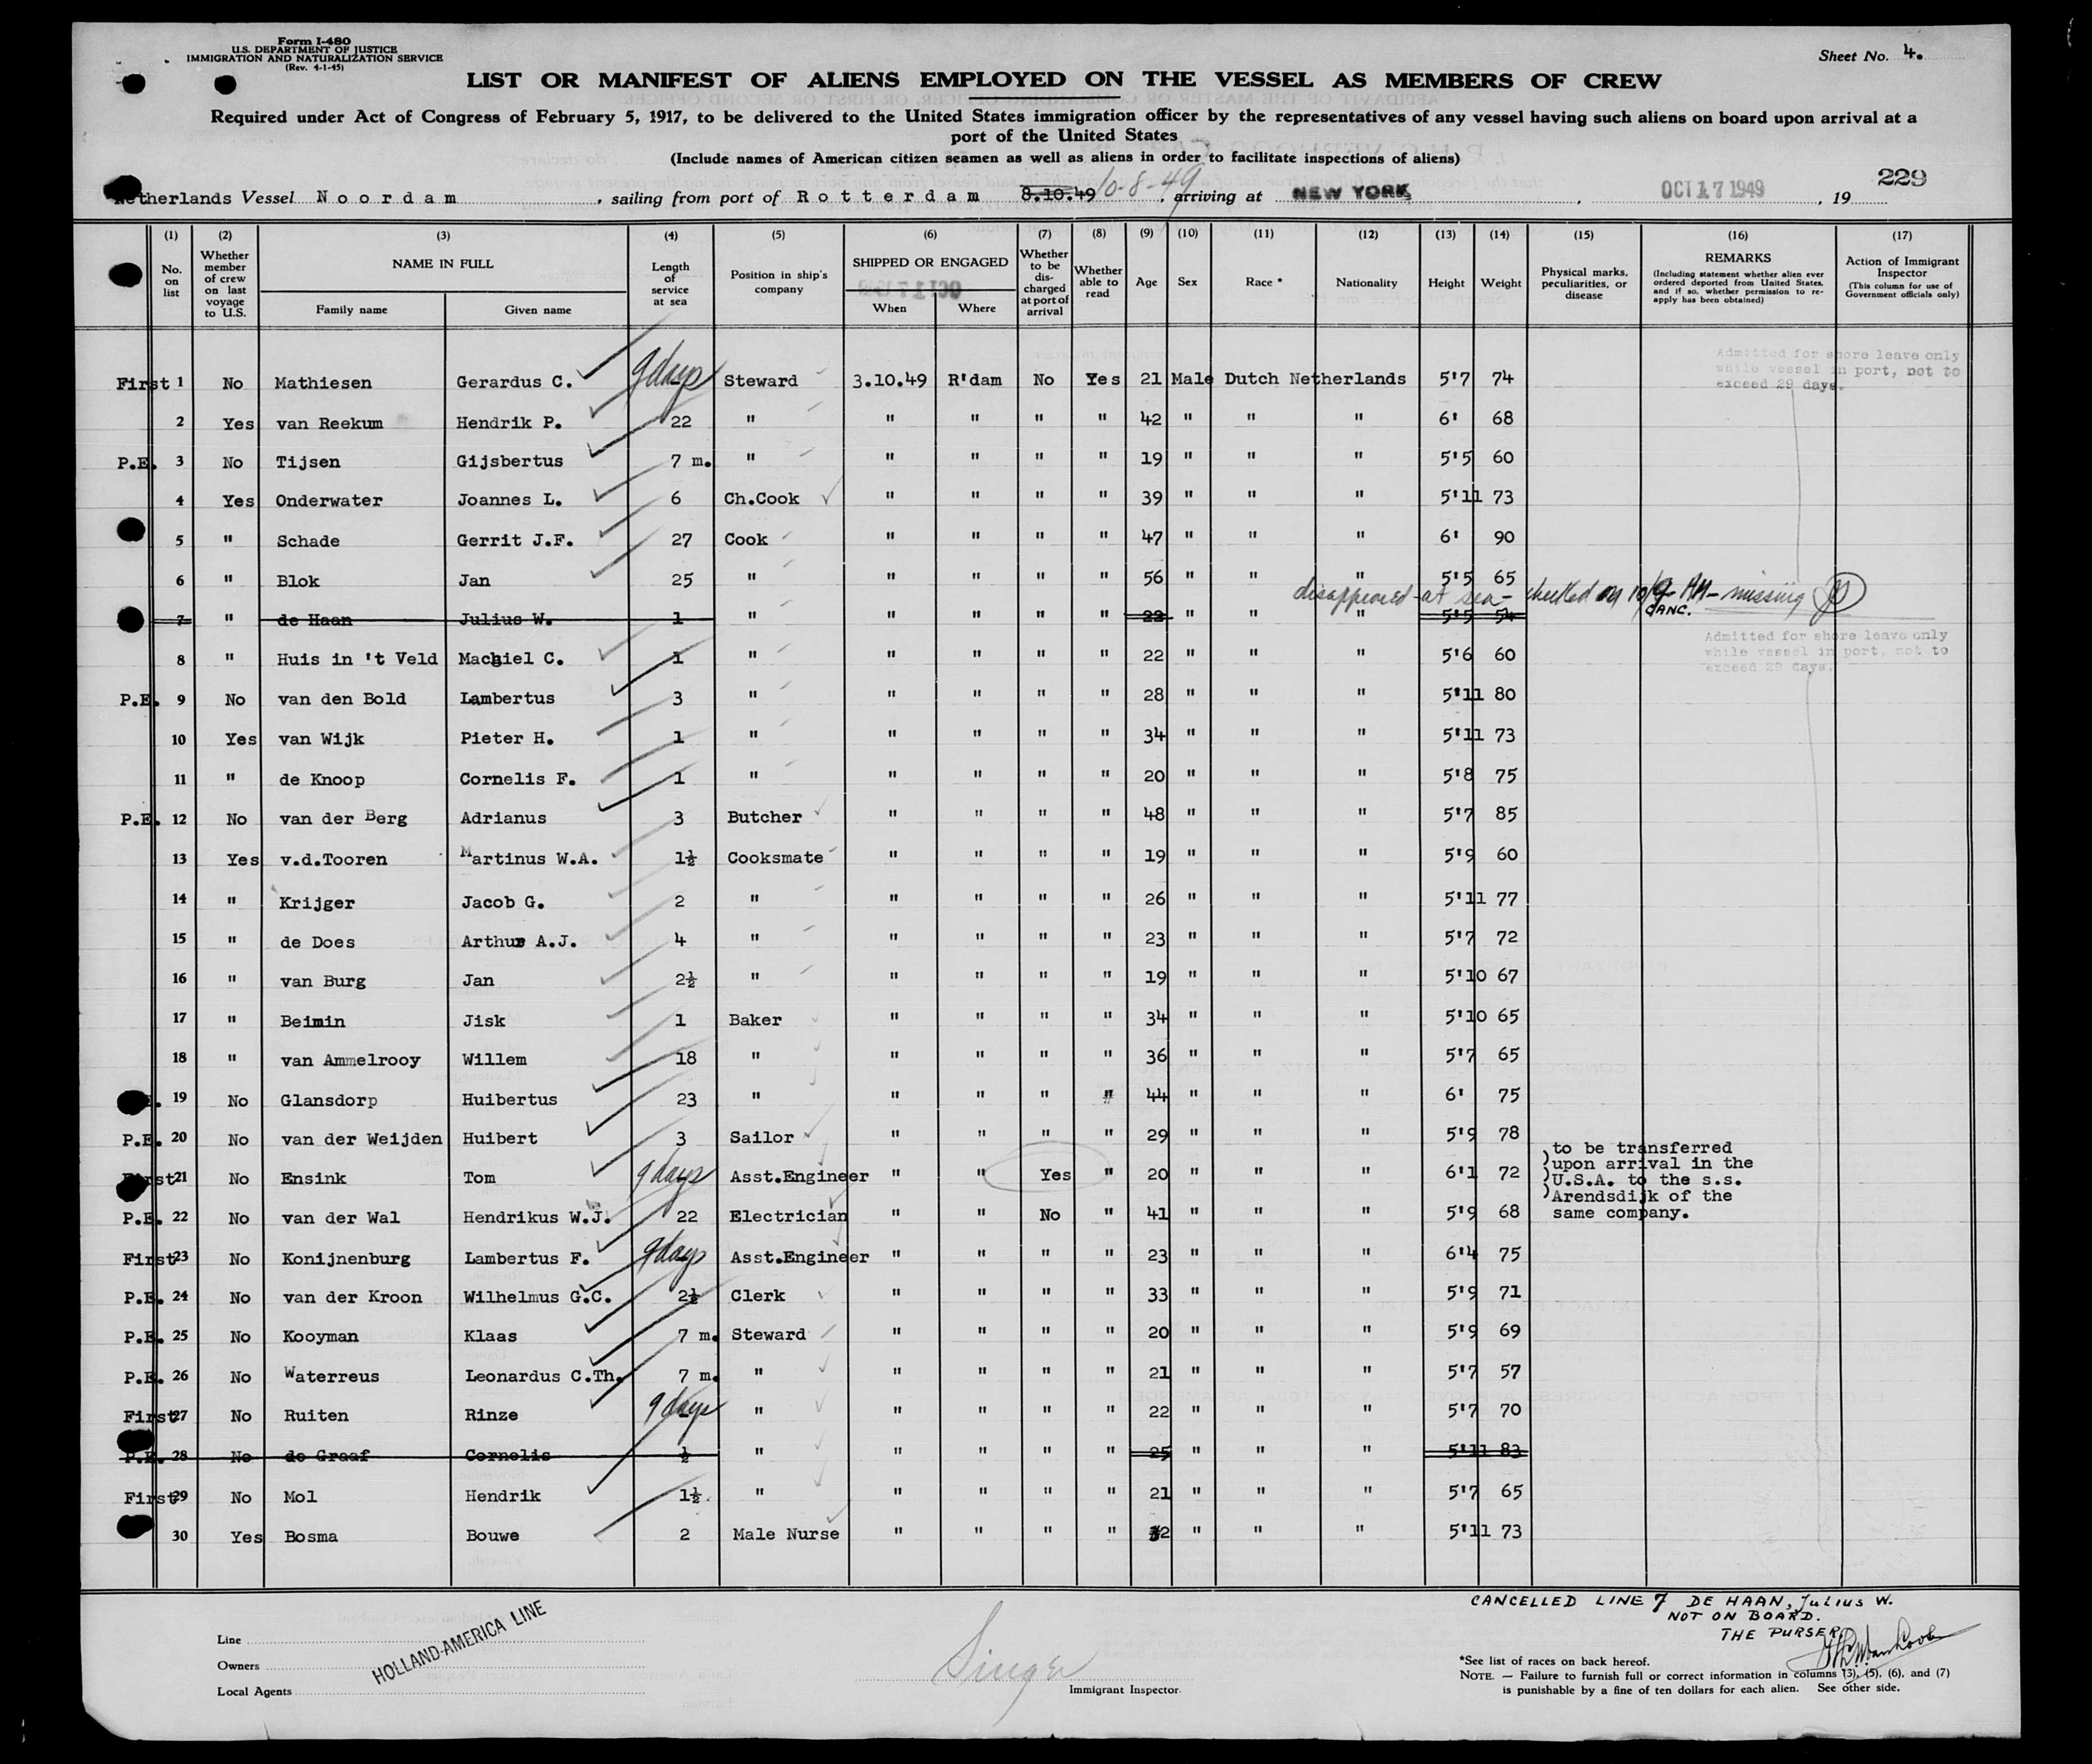 Form I-480
U.S. DEPARTMENT OF JUSTICE
IMMIGRATION AND NATURALIZATION SERVICE
(Rev. 4-1-45)
Sheet No. 4.
LIST OR MANIFEST OF ALIENS EMPLOYED ON THE VESSEL AS MEMBERS OF CREW
Required under Act of Congress of February 5, 1917, to be delivered to the United States immigration officer by the representatives of any vessel having such aliens on board upon arrival at a
port of the United States
(Include names of American citizen seamen as well as aliens in order to facilitate inspections of aliens)
229
Netherlands Vessel Noordam, sailing from port of Rotterdam 8.10.49 10-8-49, arriving at NEW YORK, OCT 17 1949, 19
(1) (2) (3) (4) (5) (6) (7) (8) (9) (10) (11) (12) (13) (14) (15) (16) (17)
No. on list
Whether member of crew on last voyage to U.S.
NAME IN FULL
Family name Given name
Length of service at sea
Position in ship's company
SHIPPED OR ENGAGED
When Where
Whether to be discharged at port of arrival
Whether able to read
Age Sex Race * Nationality Height Weight
Physical marks, peculiarities, or disease
REMARKS
(Including statement whether alien ever ordered deported from United States, and if so, whether permission to re-apply has been obtained)
Action of Immigrant Inspector
(This column for use of Government officials only)
Admitted for shore leave only
while vessel in port, not to
exceed 29 days.
First 1 No Mathiesen Gerardus C. 9 days Steward 3.10.49 R'dam No Yes 21 Male Dutch Netherlands 5'7 74
2 Yes van Reekum Hendrik P. 22 " " " " " 42 " " " 6' 68
P.E. 3 No Tijsen Gijsbertus 7 m. " " " " " 19 " " " 5'5 60
4 Yes Onderwater Joannes L. 6 Ch.Cook " " " " 39 " " " 5'11 73
5 " Schade Gerrit J.F. 27 Cook " " " " 47 " " " 6' 90
6 " Blok Jan 25 " " " " " 56 " " " 5'5 65
disappeared at sea - checked on 10/9 AM - missing
CANC.
7 " de Haan Julius W. 1 " " " " " 22 " " " 5'5 54
Admitted for shore leave only
while vessel in port, not to
exceed 29 days.
8 " Huis in 't Veld Machiel C. 1 " " " " " 22 " " " 5'6 60
P.E. 9 No van den Bold Lambertus 3 " " " " " 28 " " " 5'11 80
10 Yes van Wijk Pieter H. 1 " " " " " 34 " " " 5'11 73
11 " de Knoop Cornelis F. 1 " " " " " 20 " " " 5'8 75
P.E. 12 No van der Berg Adrianus 3 Butcher " " " " 48 " " " 5'7 85
13 Yes v.d.Tooren Martinus W.A. 1½ Cooksmate " " " " 19 " " " 5'9 60
14 " Krijger Jacob G. 2 " " " " " 26 " " " 5'11 77
15 " de Does Arthur A.J. 4 " " " " " 23 " " " 5'7 72
16 " van Burg Jan 2½ " " " " " 19 " " " 5'10 67
17 " Beimin Jisk 1 Baker " " " " 34 " " " 5'10 65
18 " van Ammelrooy Willem 18 " " " " " 36 " " " 5'7 65
19 No Glansdorp Huibertus 23 " " " " " 44 " " " 6' 75
P.E. 20 No van der Weijden Huibert 3 Sailor " " " " 29 " " " 5'9 78
First 21 No Ensink Tom 9 days Asst.Engineer " " Yes " 20 " " " 6'1 72
to be transferred
upon arrival in the
U.S.A. to the s.s.
Arendsdijk of the
same company.
P.E. 22 No van der Wal Hendrikus W.J. 22 Electrician " " No " 41 " " " 5'9 68
First 23 No Konijnenburg Lambertus F. 9 days Asst.Engineer " " " " 23 " " " 6'4 75
P.E. 24 No van der Kroon Wilhelmus G.C. 2½ Clerk " " " " 33 " " " 5'9 71
P.E. 25 No Kooyman Klaas 7 m. Steward " " " " 20 " " " 5'9 69
P.E. 26 No Waterreus Leonardus C.Th. 7 m. " " " " " 21 " " " 5'7 57
First 27 No Ruiten Rinze 9 days " " " " " 22 " " " 5'7 70
P.E. 28 No de Graaf Cornelis ½ " " " " " 25 " " " 5'11 83
First 29 No Mol Hendrik 1½ " " " " " 21 " " " 5'7 65
30 Yes Bosma Bouwe 2 Male Nurse " " " " 32 " " " 5'11 73
CANCELLED LINE 7 DE HAAN, Julius W.
NOT ON BOARD.
THE PURSER
Line
Owners
Local Agents
HOLLAND-AMERICA LINE
Singer
Immigrant Inspector.
*See list of races on back hereof.
NOTE. — Failure to furnish full or correct information in columns (3), (5), (6), and (7)
is punishable by a fine of ten dollars for each alien. See other side.